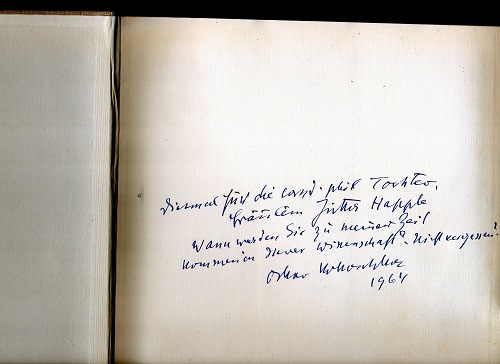 Diesmal für die cand. phil Tochter,
Fräulein Jutta Happle
Wann werden Sie zu meiner Zeit
kommen in Ihrer Wissenschaft? Nicht vergessen!
Oskar Kokoschka
1964